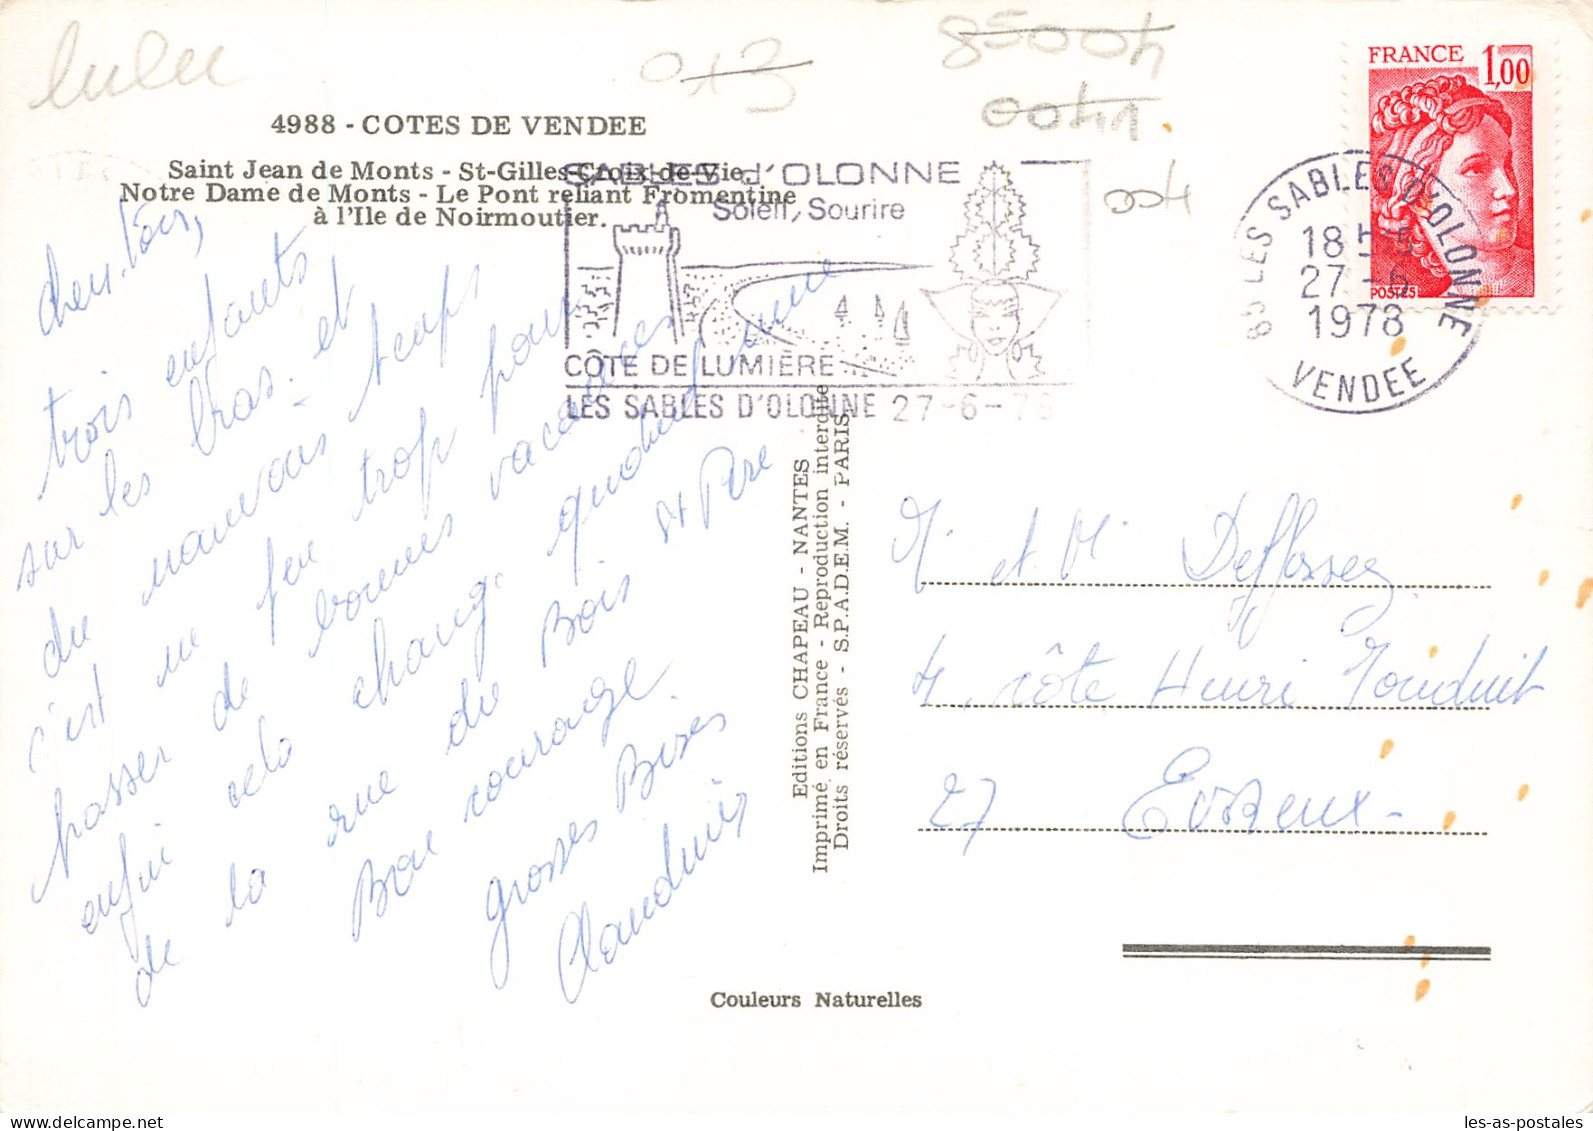 lulu
013
85004
0041
004
4988 - COTES DE VENDEE
Saint Jean de Monts - St-Gilles-Croix-de-Vie
Notre Dame de Monts - Le Pont reliant Fromentine
à l'Ile de Noirmoutier.
SABLES d'OLONNE
Soleil, Sourire
CÔTE DE LUMIÈRE
LES SABLES D'OLONNE 27-6-78
FRANCE 1,00
POSTES
85 LES SABLES D'OLONNE
18 H 15
27-6
1978
VENDEE
trois enfants
sur les bras. et
du mauvais temps
c'est un peu trop pour
passer de bonnes vacances
enfin cela change quand même
de la rue du Bois St Père
Bon courage
grosses Bises
Editions CHAPEAU - NANTES
Imprimé en France - Reproduction interdite
Droits réservés - S.P.A.D.E.M. - PARIS
et
4, côte Henri
27 Evreux
Couleurs Naturelles
les-as-postales / Delcampe.net